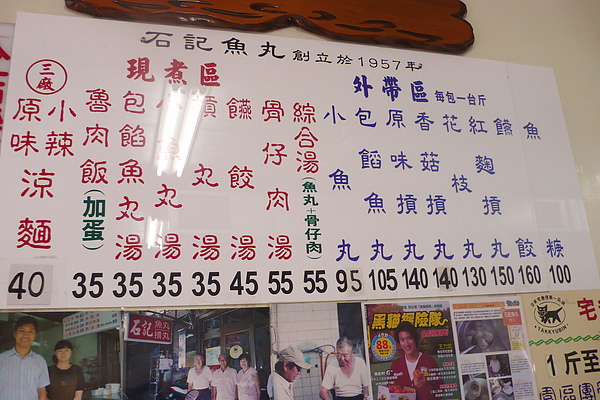 石記魚丸 創立於1957年
現煮區
三廠
原味 小辣 涼麵 40
魯肉飯(加蛋) 35
包餡魚丸湯 35
小魚丸湯 35
摃丸湯 35
饍餃湯 45
骨仔肉湯 55
綜合湯(魚丸+骨仔肉) 55
外帶區 每包一台斤
小魚丸 95
包饀魚丸 105
原味摃丸 140
香菇摃丸 140
花枝丸 130
紅麴摃丸 150
饍餃 160
魚糖 100
石記 魚丸 摃丸
黑貓探險隊
88
TAKKYUBIN
宅
1斤至